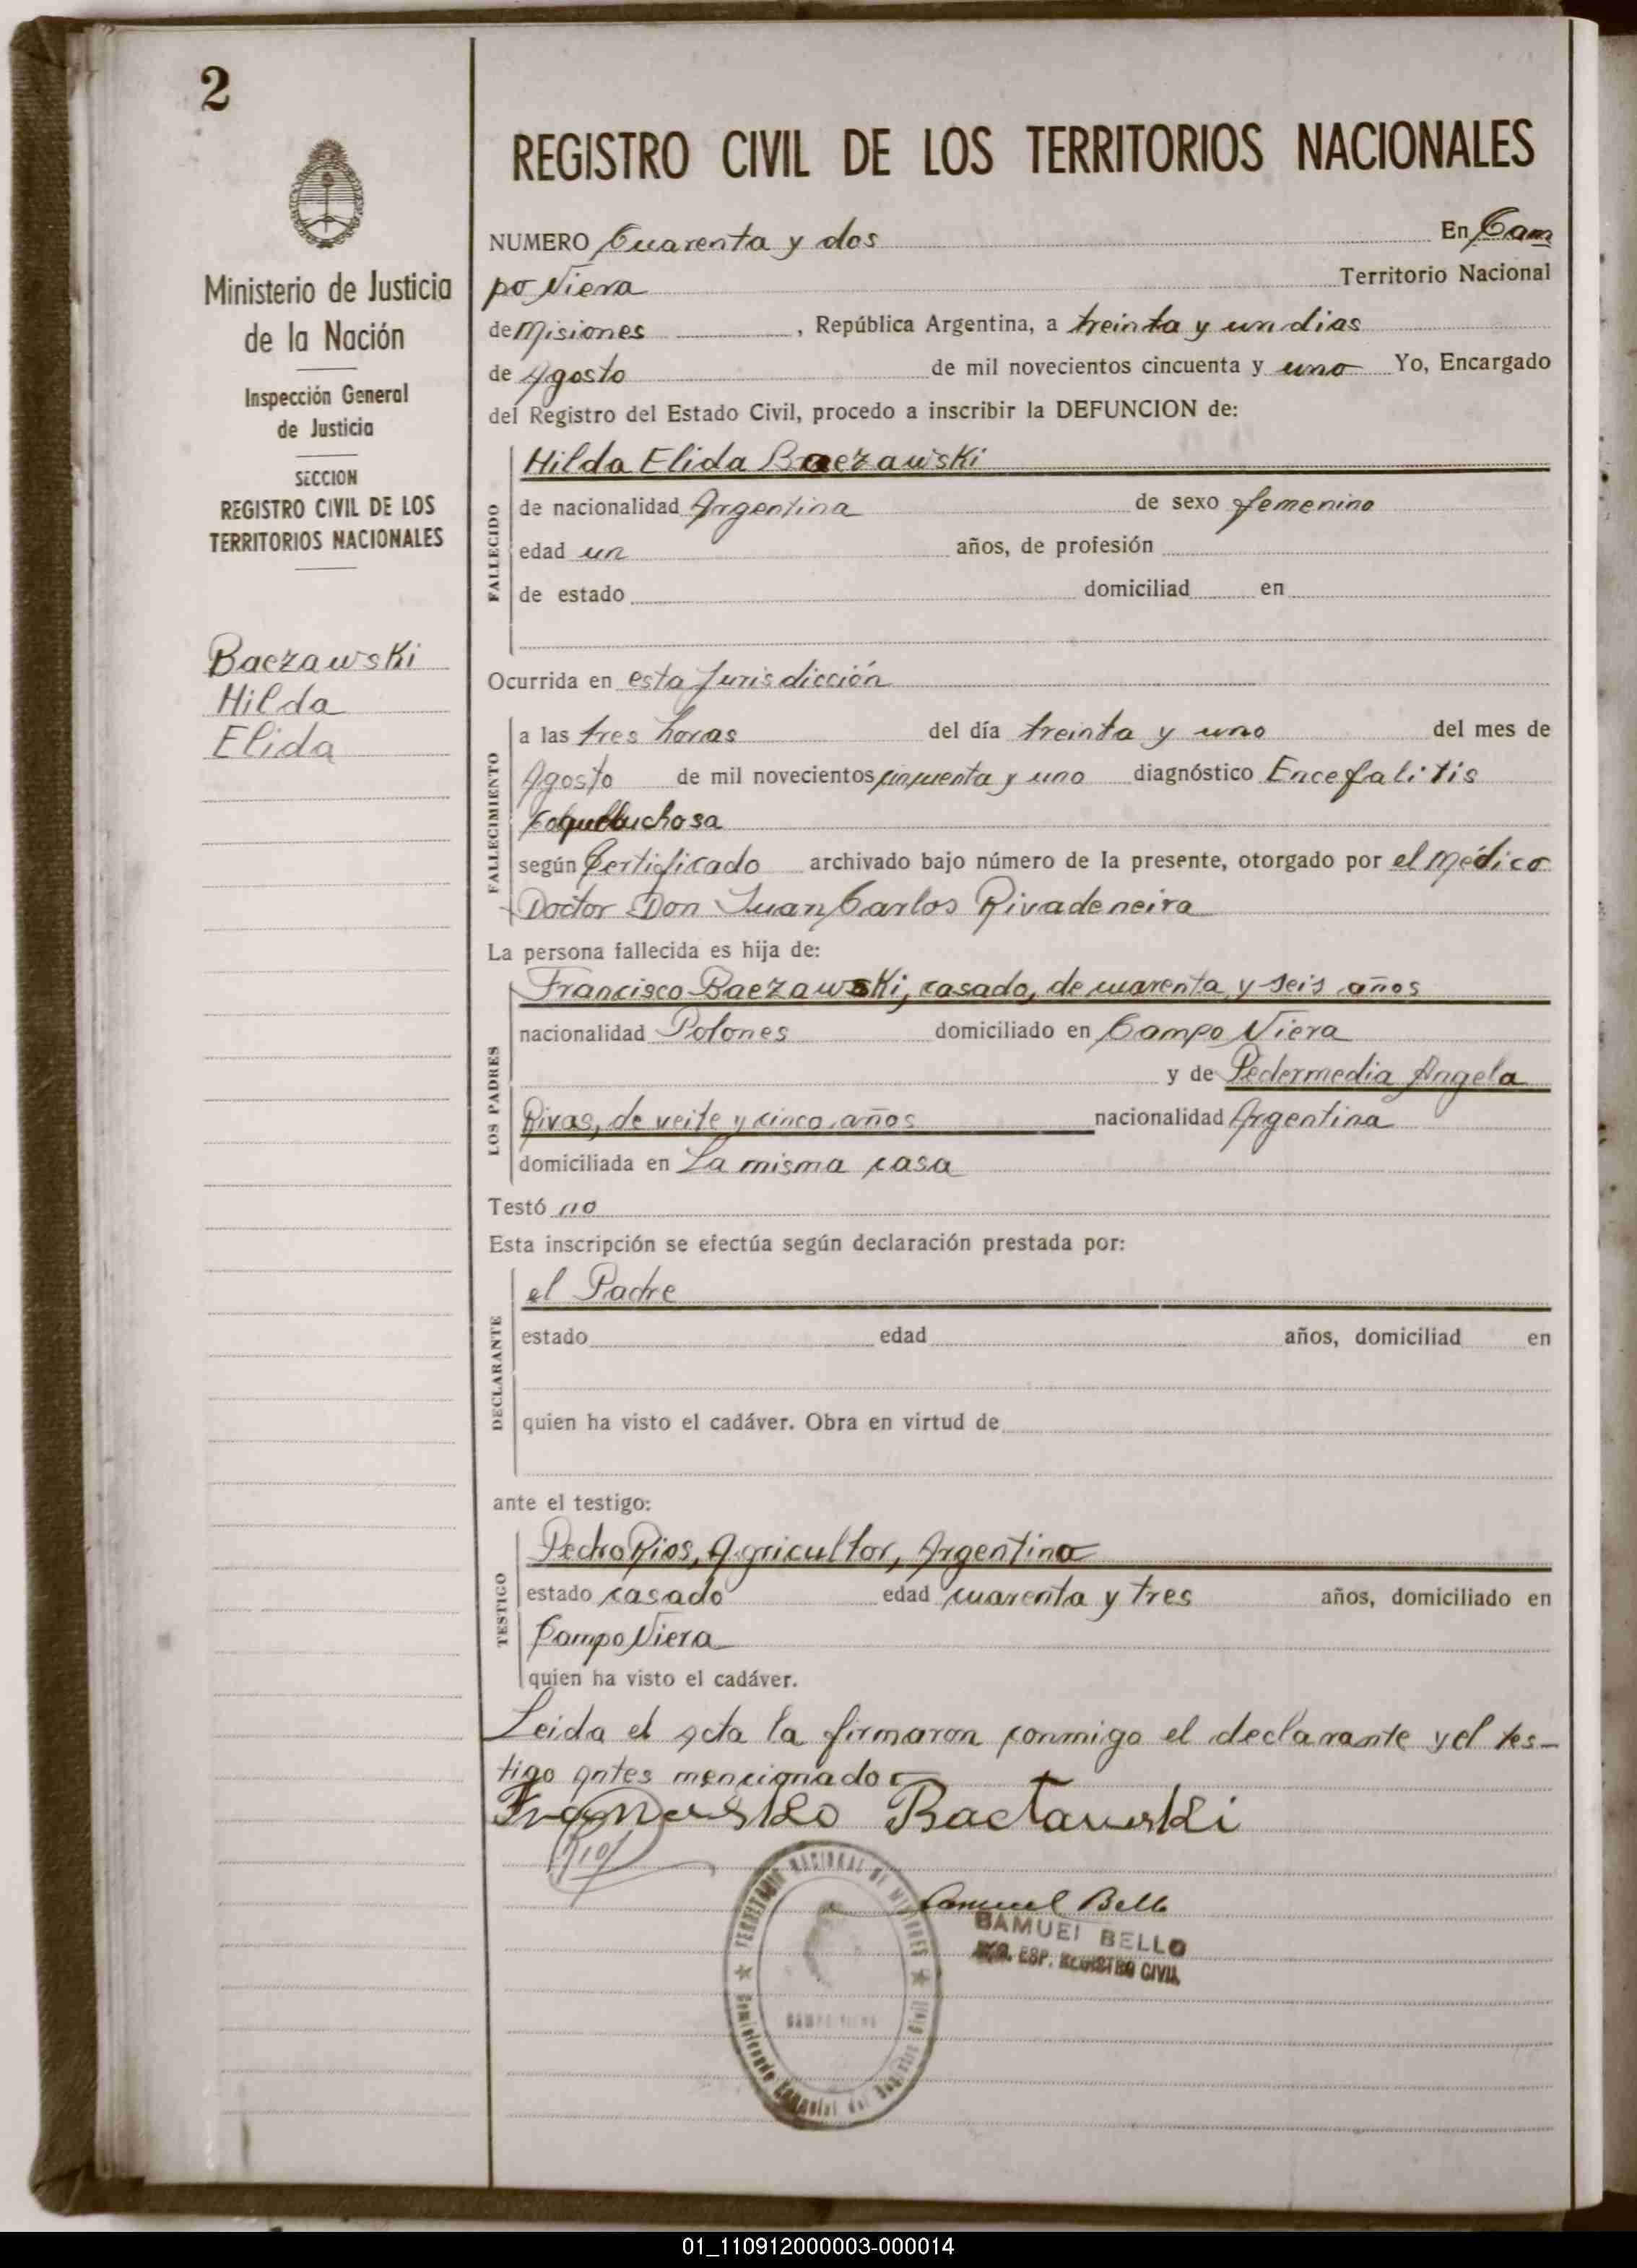 2
Ministerio de Justicia
de la Nación
Inspección General
de Justicia
SECCION
REGISTRO CIVIL DE LOS
TERRITORIOS NACIONALES
Baezawski
Hilda
Elida
REGISTRO CIVIL DE LOS TERRITORIOS NACIONALES
NUMERO Cuarenta y dos En Cam
po Viera Territorio Nacional
de Misiones, República Argentina, a treinta y un dias
de Agosto de mil novecientos cincuenta y uno Yo, Encargado
del Registro del Estado Civil, procedo a inscribir la DEFUNCION de:
FALLECIDO
Hilda Elida Baezawski
de nacionalidad Argentina de sexo femenino
edad un años, de profesión
de estado domiciliad en
Ocurrida en esta Jurisdicción
FALLECIMIENTO
a las tres horas del día treinta y uno del mes de
Agosto de mil novecientos cincuenta y uno diagnóstico Encefalitis
Coqueluchosa
según Certificado archivado bajo número de la presente, otorgado por el Médico
Doctor Don Juan Carlos Rivadeneira
La persona fallecida es hija de:
LOS PADRES
Francisco Baezawski, casado, de cuarenta y seis años
nacionalidad Polones domiciliado en Campo Viera
y de Pedermedia Angela
Rivas, de veite y cinco años nacionalidad Argentina
domiciliada en La misma casa
Testó no
Esta inscripción se efectúa según declaración prestada por:
DECLARANTE
el Padre
estado edad años, domiciliad en
quien ha visto el cadáver. Obra en virtud de
ante el testigo:
TESTIGO
Pedro Rios, Agricultor, Argentino
estado casado edad cuarenta y tres años, domiciliado en
Campo Viera
quien ha visto el cadáver.
Leida el acta la firmaron conmigo el declarante y el tes-
tigo antes mencionado
Bactawski
Samuel Bello
SAMUEL BELLO
ESP. REGISTRO CIVIL
TERRITORIO NACIONAL DE MISIONES
CAMPO VIERA
01_110912000003-000014